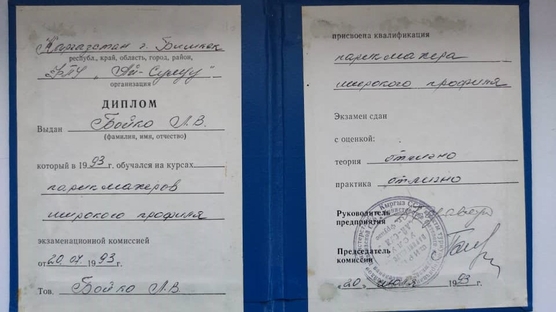 Кыргызстан г. Бишкек
республ., край, область, город, район,
"Ай-Сулуу"
организация
ДИПЛОМ
Выдан Бойко Л.В.
(фамилия, имя, отчество)
который в 1993 г. обучался на курсах
парикмахеров
широкого профиля
экзаменационной комиссией
от 20.07. 1993 г.
Тов. Бойко Л.В.
присвоена квалификация
парикмахера
широкого профиля
Экзамен сдан
с оценкой:
теория отлично
практика отлично
Руководитель
предприятия
Председатель
комиссии
"20" июля 1993 г.
Кыргыз ССР